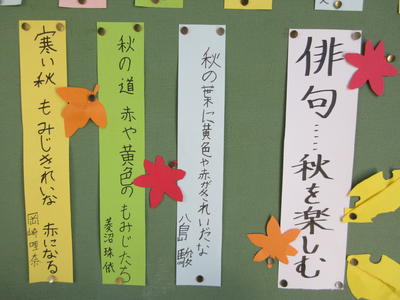 俳句……秋を楽しむ
秋の葉に黄色や赤がきれいだな
八島 駿
秋の道 赤や黄色の もみじたち
菱沼 珠依
寒い秋 もみじきれいな 赤になる
岡崎 理奈